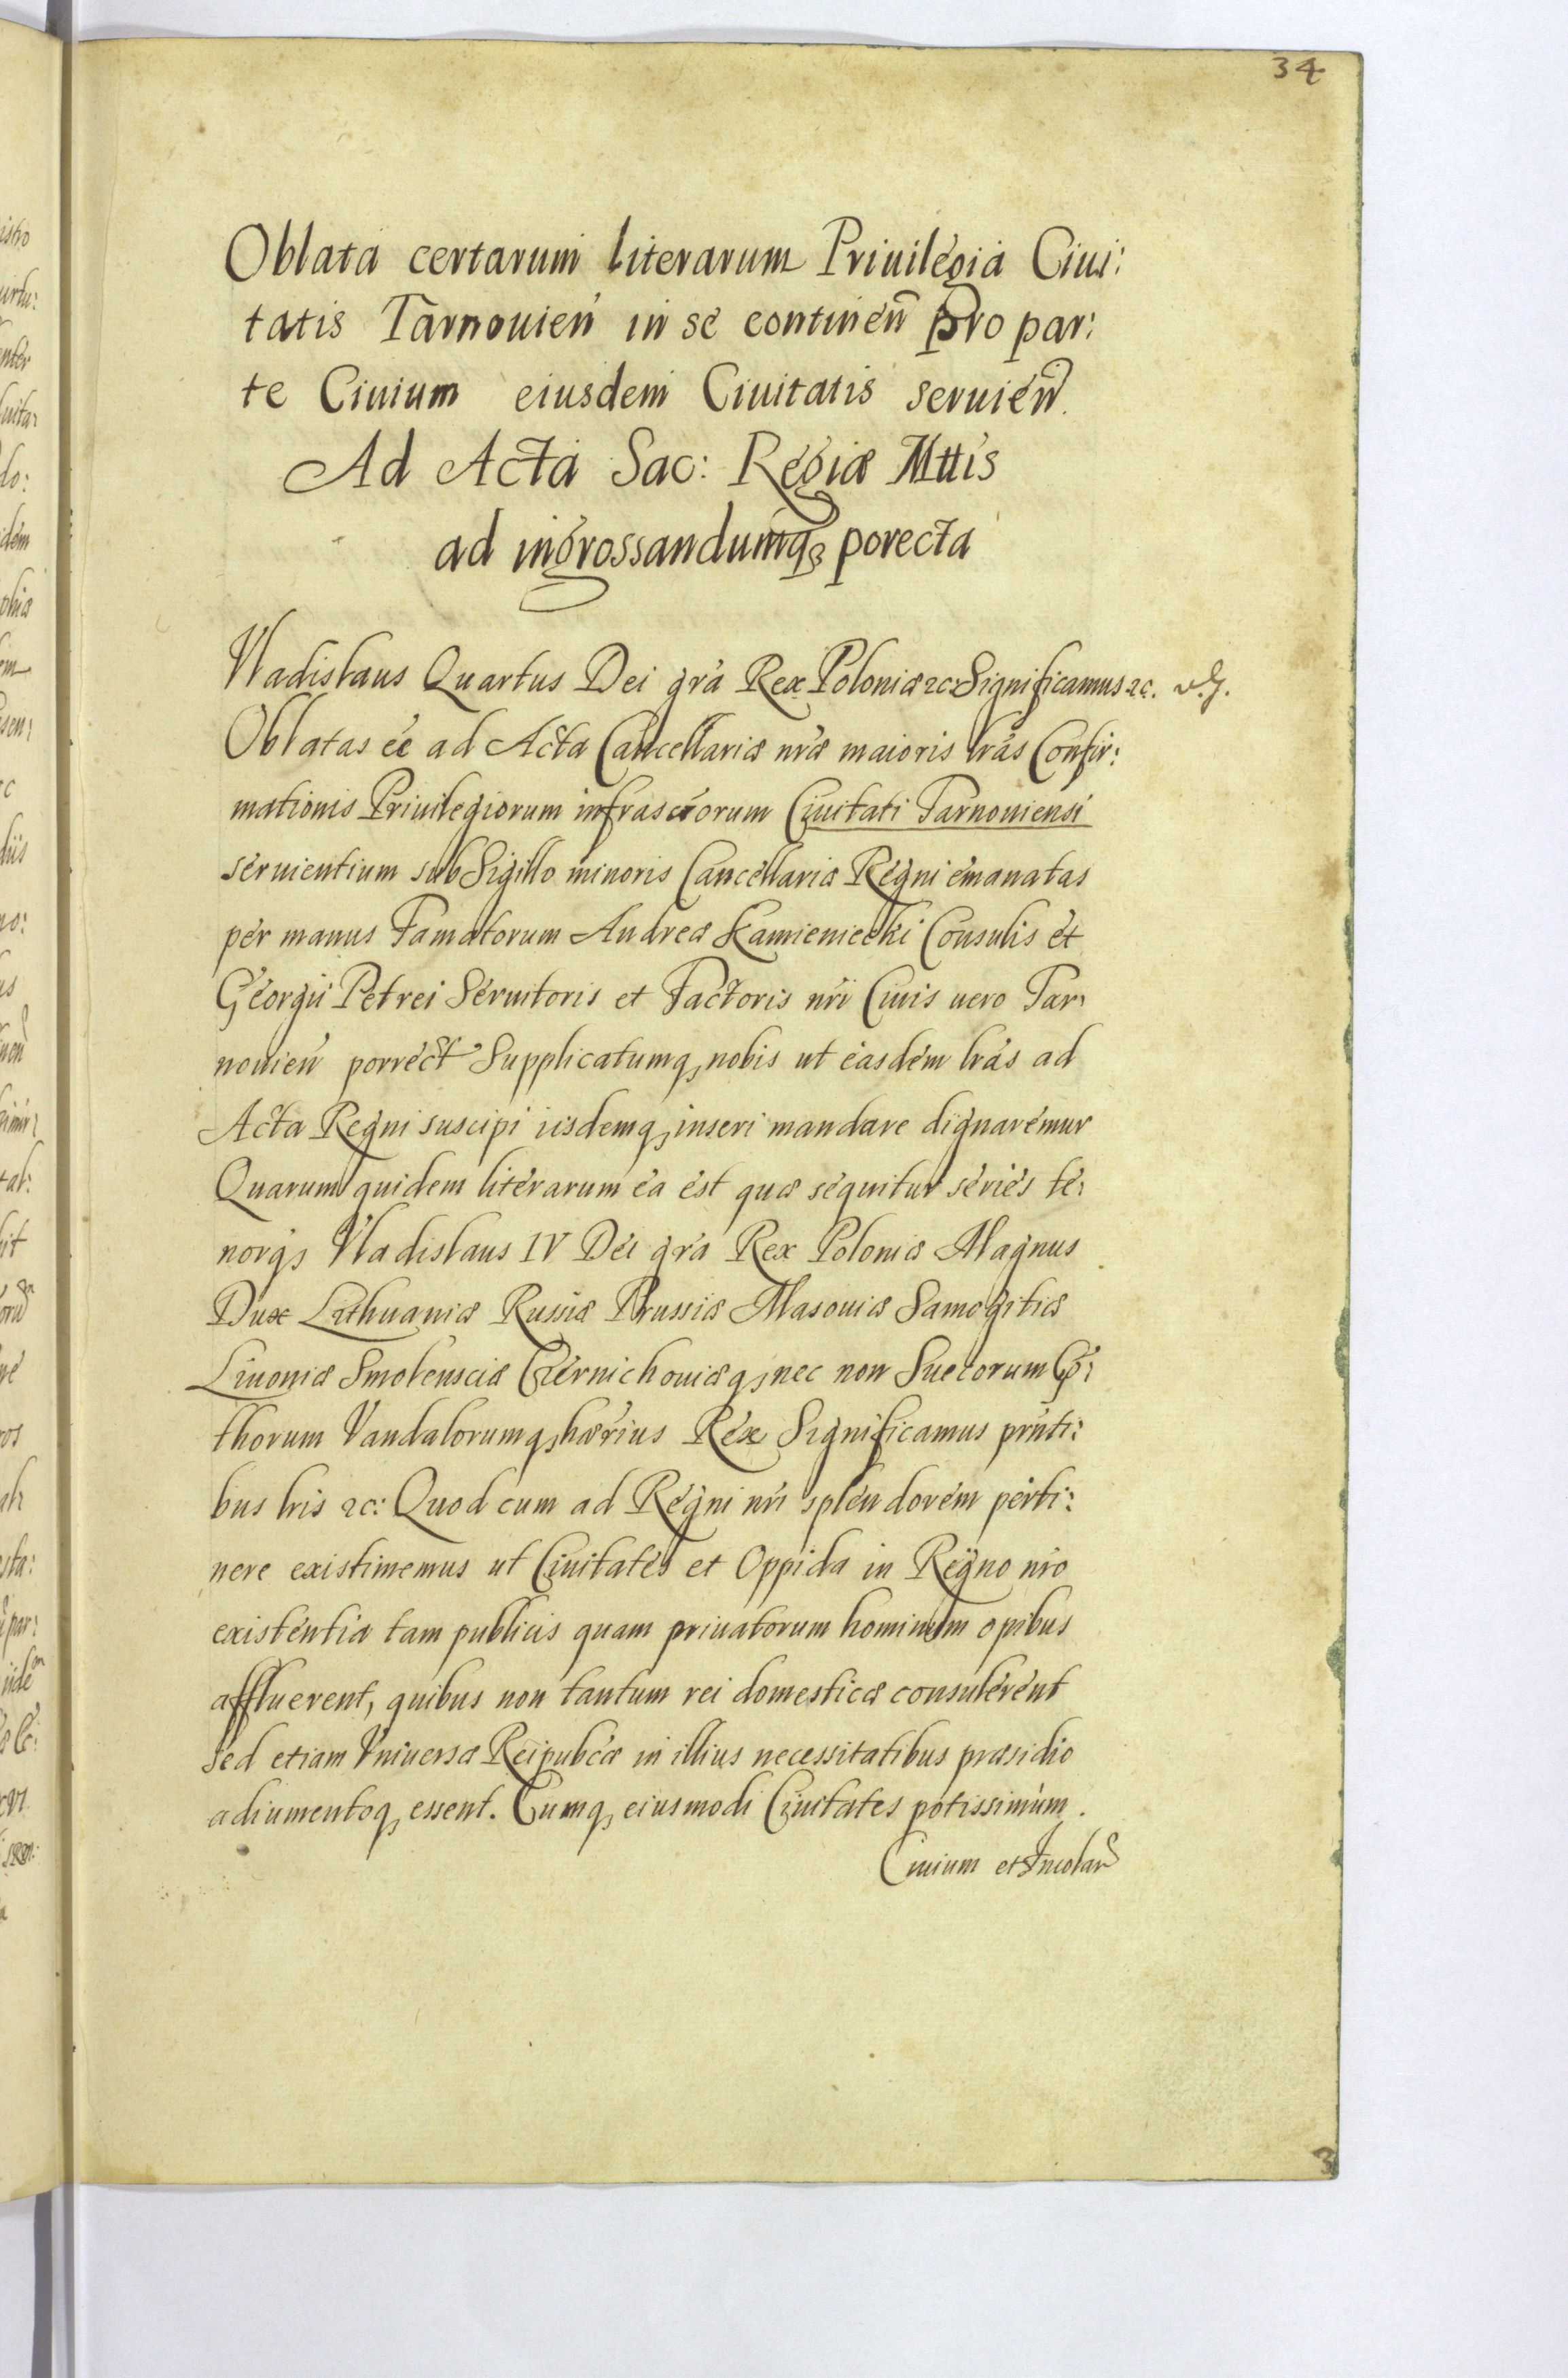 34
Oblata certarum literarum Priuilegia Ciui:
tatis Tarnouien̄ in se continen̄ Pro par:
te Ciuium eiusdem Ciuitatis seruien̄.
Ad Acta Sac: Regiæ Mttis
ad ingrossandumq₃ porecta
Vladislaus Quartus Dei grã Rex Poloniæ ꝛc. Significamus ꝛc.
Oblatas eẽ ad Acta Cancellariæ nræ maioris lrãs Confir:
mationis Priuilegiorum infrascrorum Ciuitati Tarnouiensi
seruientium sub Sigillo minoris Cancellariæ Regni emanatas
per manus Famatorum Andreæ Kamieniecki Consulis et
Georgii Petrei Seruitoris et Factoris nri Ciuis uero Tar:
nouien̄ porrect Supplicatumq, nobis ut easdem lrãs ad
Acta Regni suscipi iisdemq, inseri mandare dignaremur
Quarum quidem literarum ea est quæ sequitur series te:
norq, Vladislaus IV Dei grã Rex Poloniæ Magnus
Dux Lithuaniæ Russiæ Prussiæ Masouiæ Samogitiæ
Liuoniæ Smolensciæ Czernichouiæq, nec non Suecorum Go:
thorum Vandalorumq, hærius Rex Significamus prñti:
bus lris ꝛc: Quod cum ad Regni nri splendorem perti:
nere existimemus ut Ciuitates et Oppida in Regno nro
existentia tam publicis quam priuatorum hominum opibus
affluerent, quibus non tantum rei domesticæ consulerent
sed etiam Vniuersæ Reipubcæ in illius necessitatibus præsidio
adiumentoq, essent. Cumq, eiusmodi Ciuitates potissimùm.
Ciuium et Incolar
3